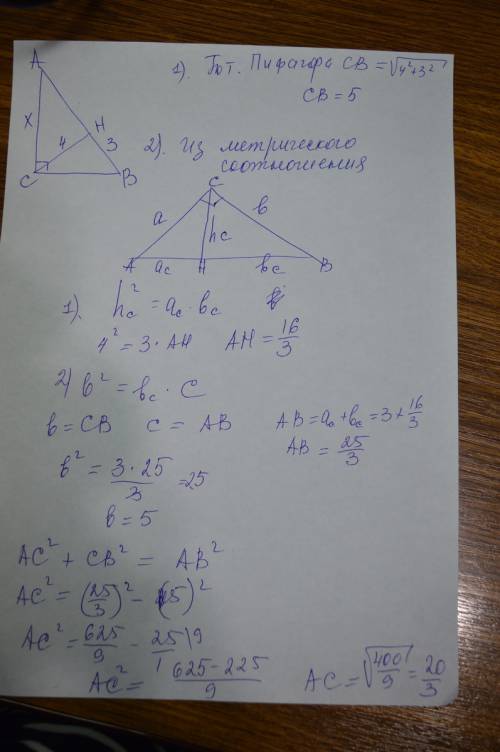 A
X
4
H
3
C
B
1). По т. Пифагора CB = √4²+3²
CB = 5
2). Из метрического
соотношения
C
a
b
hc
A
ac
H
bc
B
1). hc² = ac · bc
4² = 3 · AH AH = 16/3
2) b² = bc · C
b = CB c = AB
AB = ac + bc = 3 + 16/3
AB = 25/3
b² = 3·25/3 = 25
b = 5
AC² + CB² = AB²
AC² = (25/3)² − (5)²
AC² = 625/9 − 25/1 \9
AC² = 625−225/9
AC = √400/9 = 20/3